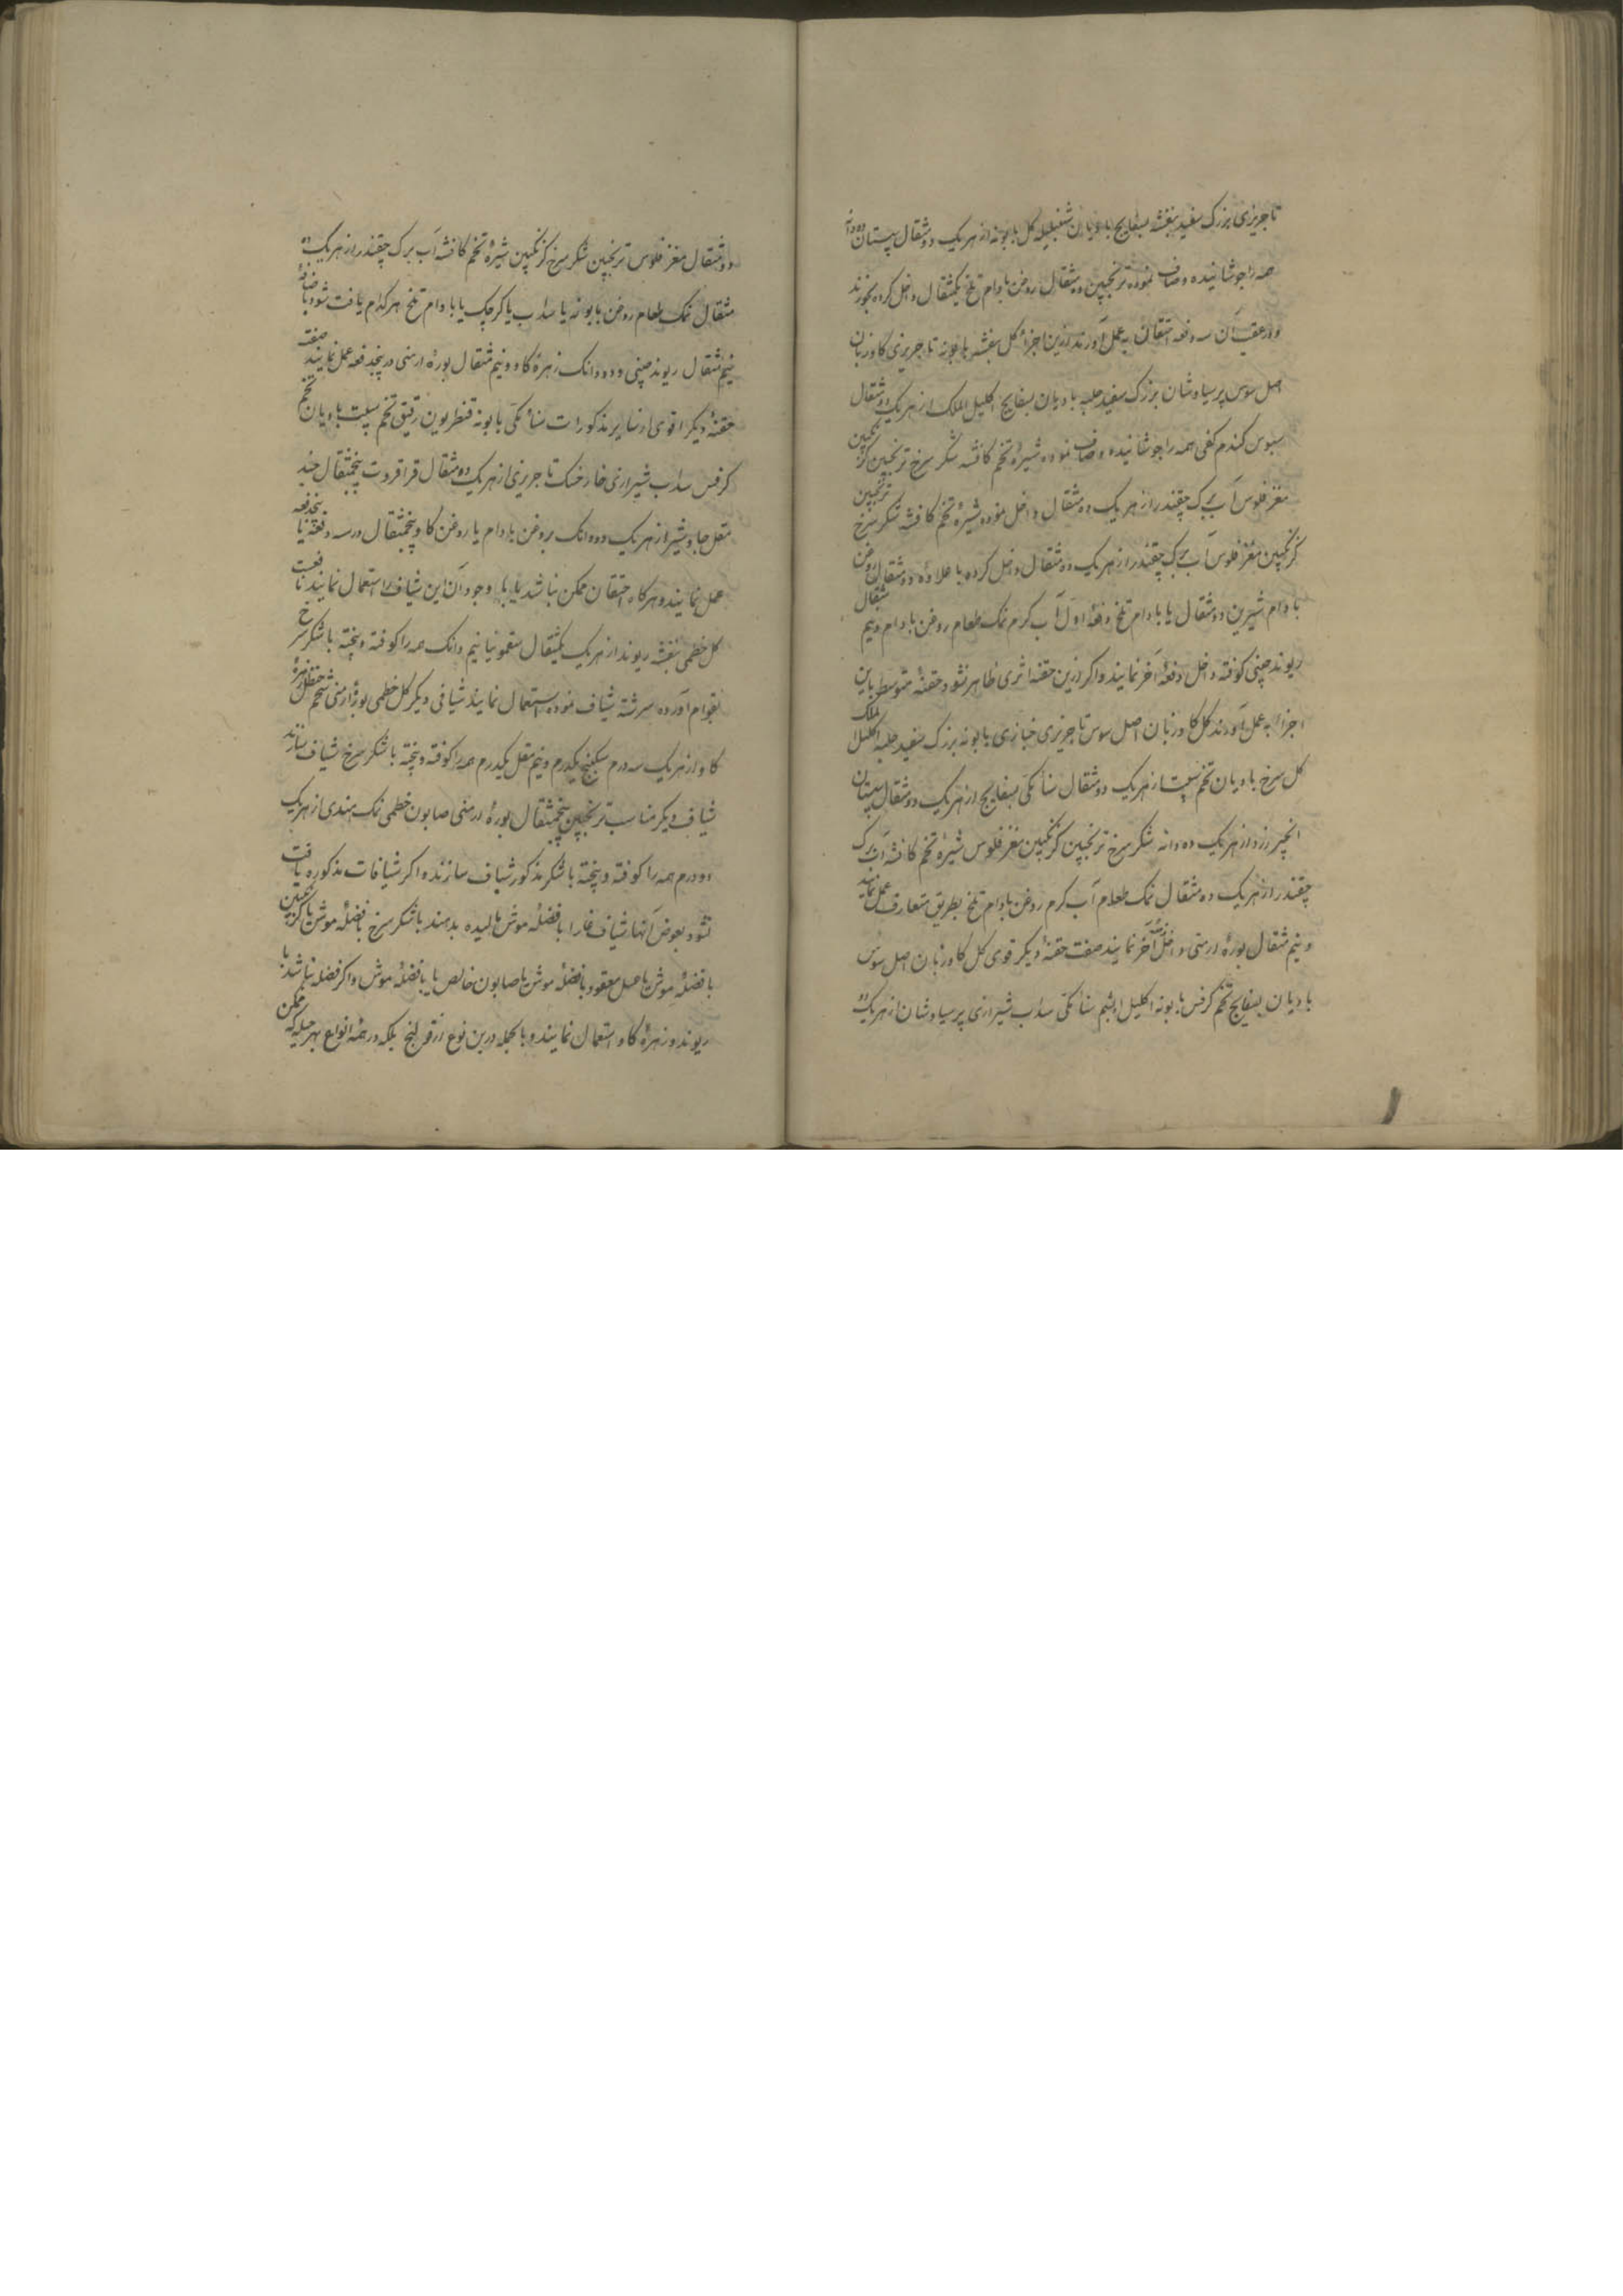 تاجریزی بزرک سفید بنفشه بسفایج بادیان شنبلیله کل بابونه از هر یک دو مثقال سپستان ده دانه
همه را جوشانیده و صاف نموده ترنجبین ده مثقال روغن بادام تلخ یکمثقال داخل کرده بخورند
و در عقب آن سه دفعه احتقان بعمل آورند ازین اجزا کل بنفشه بابونه تاجریزی کاوزبان
اصل سوس پرسیاوشان بزرک سفید حلبه بادیان بسفایج اکلیل الملک از هر یک دو مثقال
سبوس کندم کفی همه را جوشانیده و صاف نموده شیرهٔ تخم کافشه شکر سرخ ترنجبین کزنکبین
مغز فلوس آب برک چقندر از هر یک ده مثقال داخل نموده شیرهٔ تخم کافشه شکر سرخ ترنجبین
کزنکبین مغز فلوس آب برک چقندر از هر یک ده مثقال داخل کرده با علاوه دو مثقال روغن
بادام شیرین دو مثقال یا بادام تلخ دفعهٔ اول آب کرم نمک طعام روغن بادام و نیم مثقال
ریوند چینی کوفته داخل دفعهٔ آخر نمایند و اکر ازین حقنه اثری ظاهر نشود حقنهٔ متوسط باین
اجزا بعمل آورند کل کاوزبان اصل سوس تاجریزی خبازی بابونه بزرک سفید حلبه اکلیل الملک
کل سرخ بادیان تخم شبت از هر یک دو مثقال سنا مکی بسفایج از هر یک دو مثقال سپستان
انجیر زرد از هر یک ده دانه شکر سرخ ترنجبین کزنکبین مغز فلوس شیرهٔ تخم کافشه آب برک
چقندر از هر یک ده مثقال نمک طعام آب کرم روغن بادام تلخ بطریق متعارف عمل نمایند
و نیم مثقال بورهٔ ارمنی داخل آخر نمایند صفت حقنهٔ دیکر قوی کل کاوزبان اصل سوس
بادیان بسفایج تخم کرفس بابونه اکلیل سنا مکی سداب شیرازی پرسیاوشان از هر یک
دو مثقال مغز فلوس ترنجبین شکر سرخ کزنکبین شیرهٔ تخم کافشه آب برک چقندر از هر یک ده
مثقال نمک طعام روغن بابونه یا سداب یا کرچک یا بادام تلخ هر کدام یافت شود باضافهٔ
نیم مثقال ریوند چینی و دو دانک زهرهٔ کاو و نیم مثقال بورهٔ ارمنی در پنجدفعه عمل نمایند صفت
حقنهٔ دیکر اقوی از سایر مذکورات سنا مکی بابونه قنطریون رقیق تخم شبت بادیان تخم
کرفس سداب شیرازی خارخسک تاجریزی از هر یک ده مثقال قراقروت پنجمثقال جند
مقل جاوشیر از هر یک دو دانک بروغن بادام یا روغن کاو پنجمثقال در سه دفعه تا پنجدفعه
عمل نمایند و هرکاه احتقان ممکن نباشد یا با وجود آن این شیاف را استعمال نمایند نافعست
کل خطمی بنفشه ریوند از هر یک یکمثقال سقمونیا نیم دانک همه را کوفته و پخته با شکر سرخ
بقوام آورده سرشته شیاف نموده استعمال نمایند شیافی دیکر کل خطمی بورهٔ ارمنی شحم حنظل زهرهٔ
کاو از هر یک سه درم سکبینج یکدرم و نیم مقل یکدرم همه را کوفته و پخته با شکر سرخ شیاف سازند
شیاف دیکر مناسب ترنجبین پنجمثقال بورهٔ ارمنی صابون خطمی نمک هندی از هر یک
دو درم همه را کوفته و پخته با شکر مذکور شیاف سازند و اکر شیافات مذکوره یافت
نشود بعوض آنها شیاف را با فضلهٔ موش مالیده بدهند یا شکر سرخ با فضلهٔ موش یا کزنکبین
با فضلهٔ موش یا عسل معقود با فضلهٔ موش یا صابون خالص یا با فضلهٔ موش و اکر فضله نباشد با
ریوند و زهرهٔ کاو استعمال نمایند و بالجمله درین نوع از قولنج بلکه در همهٔ انواع بهر حیله که ممکن